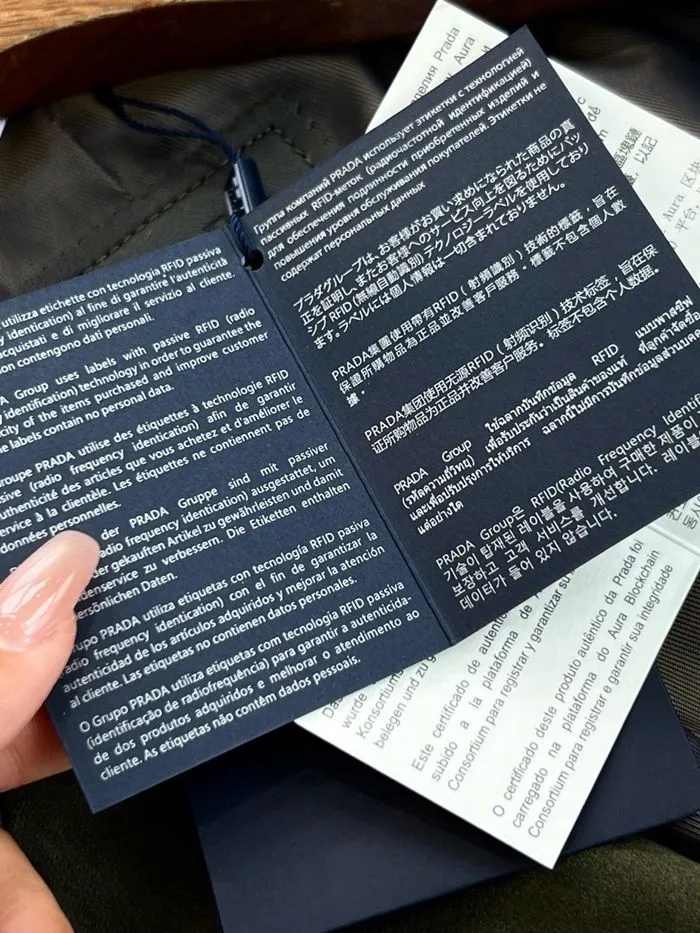 utilizza etichette con tecnologia RFID passiva
identication) al fine di garantire l'autenticità
acquistati e di migliorare il servizio al cliente.
non contengono dati personali.
Group uses labels with passive RFID (radio
identification) technology in order to guarantee the
of the items purchased and improve customer
labels contain no personal data.
PRADA utilise des étiquettes à technologie RFID
(radio frequency identication) afin de garantir
authenticité des articles que vous achetez et d'améliorer le
service à la clientèle. Les étiquettes ne contiennent pas de
données personnelles.
der PRADA Gruppe sind mit passiver
radio frequency identication) ausgestattet, um
der gekauften Artikel zu gewährleisten und damit
zu verbessern. Die Etiketten enthalten
persönlichen Daten.
PRADA utiliza etiquetas con tecnología RFID pasiva
radio frequency identication) con el fin de garantizar la
autenticidad de los artículos adquiridos y mejorar la atención
al cliente. Las etiquetas no contienen datos personales.
O Grupo PRADA utiliza etiquetas com tecnologia RFID passiva
(identificação de radiofrequência) para garantir a autenticida-
de dos produtos adquiridos e melhorar o atendimento ao
cliente. As etiquetas não contêm dados pessoais.
Группа компаний PRADA использует этикетки с технологией
пассивных RFID-меток (радиочастотной идентификацией)
для обеспечения подлинности приобретенных изделий и
повышения уровня обслуживания покупателей. Этикетки не
содержат персональных данных
プラダグループは、お客様がお買い求めになられた商品の真
正を証明し、またお客様へのサービス向上を図るためにパッ
シブRFID(無線自動識別)テクノロジーラベルを使用しており
ます。ラベルには個人情報は一切含まれておりません。
PRADA集團使用帶有RFID(射頻識別)技術的標籤,旨在
保證所購物品為正品並改善客戶服務。標籤不包含個人數
據。
PRADA集团使用无源RFID(射频识别)技术标签,旨在保
证所购物品为正品并改善客户服务。标签不包含个人数据。
PRADA Group ใช้ฉลากบันทึกข้อมูล RFID แบบพาสซีฟ
(รหัสความถี่วิทยุ) เพื่อรับประกันว่าเป็นสินค้าของแท้ ที่ลูกค้าจัดซื้อ
และเพื่อปรับปรุงการให้บริการ ฉลากนี้ไม่มีการบันทึกข้อมูลส่วนบุคคล
แต่อย่างใด
PRADA Group은 RFID(Radio Frequency
기술이 탑재된 레이블을 사용하여 구매한 제품의
보장하고 고객 서비스를 개선합니다.
데이터가 들어 있지 않습니다.
Prada
Aura
區塊鏈
以記
Aura 区块
平台,
wurde
Konsortiums
belegen und zu
Este certificado de
subido a la plataforma de
Consortium para registrar y garantizar su
O certificado deste produto autêntico da Prada foi
carregado na plataforma do Aura Blockchain
Consortium para registrar e garantir sua integridade